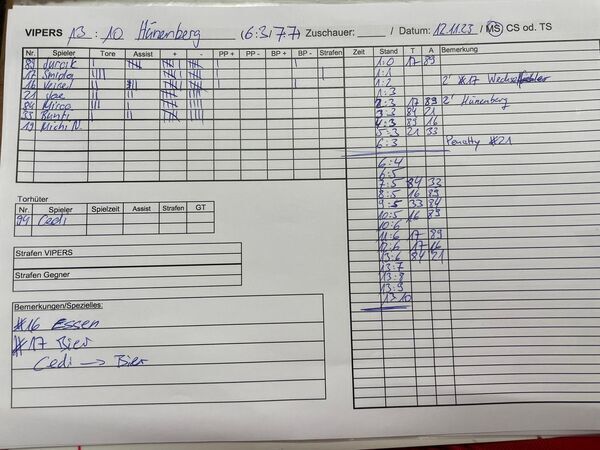 VIPERS 13 : 10 Hünenberg (6:3/7:7) Zuschauer: Datum: 12.11.23 MS CS od. TS
Nr. Spieler Tore Assist + - PP + PP - BP + BP - Strafen
17
16
21
84 Mirco
33
19 Michi N.
Torhüter
Nr. Spieler Spielzeit Assist Strafen GT
94 Cedi
Strafen VIPERS
Strafen Gegner
Bemerkungen/Spezielles:
#16 Essen
#17 Bier
Cedi → Bier
Zeit Stand T A Bemerkung
1:0 17 89
1:1
1:2 2' #17
1:3
2:3 17 89 2' Hünenberg
3:3 84 21
4:3 89 16
5:3 21 33
6:3 Penalty #21
6:4
6:5
7:5 84 33
8:5 16 89
9:5 33 84
10:5 16 89
10:6
11:6 17 89
12:6 17 16
13:6 84 21
13:7
13:8
13:9
13:10